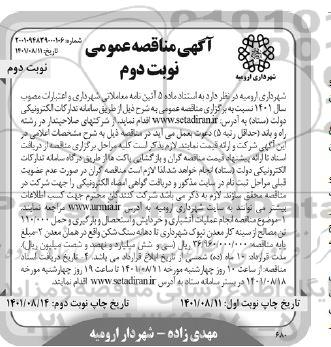 شماره: ۲۰۰۱۰۹۴۸۳۹۰۰۰۱۰۶
تاریخ: ۱۴۰۱/۰۸/۱۱
نوبت دوم
آگهی مناقصه عمومی
نوبت دوم
شهرداری ارومیه
شهرداری ارومیه در نظر دارد به استناد ماده ۵ آئین نامه معاملاتی شهرداری و اعتبارات مصوب
سال ۱۴۰۱ نسبت به برگزاری مناقصه عمومی به شرح ذیل از طریق سامانه تدارکات الکترونیکی
دولت (ستاد) به آدرس: www.setadiran.ir اقدام نماید. از شرکتهای صلاحیتدار در رشته
راه و باند (حداقل رتبه ۵) دعوت بعمل می آید در مناقصه ذیل به شرح مشخصات اعلامی در
این آگهی شرکت و ارائه قیمت نمایند. لازم بذکر است کلیه مراحل برگزاری مناقصه از دریافت
اسناد تا ارائه پیشنهاد قیمت مناقصه گران و بازگشائی پاکت ها از طریق درگاه سامانه تدارکات
الکترونیکی دولت (ستاد) انجام خواهد شد. لذا لازم است مناقصه گران در صورت عدم عضویت
قبلی مراحل ثبت نام در سایت مذکور و دریافت گواهی امضاء الکترونیکی را جهت شرکت در
مناقصه محقق سازند. لازم به ذکر می باشد شرکت کنندگان محترم جهت کسب اطلاعات
بیشتر می توانند به سایت شهرداری ارومیه به آدرس www.urmia.ir مراجعه نمایند.
۱-موضوع مناقصه: انجام عملیات آتشباری و خردایش و استحصال و بارگیری و حمل ۱۹۰/۰۰۰
تن مصالح از سینه کار معدن نبوک شهرداری تا دهانه سنگ شکن واقع در همان معدن ۲-مبلغ
پایه مناقصه: ۳۶/۹۶۰/۰۰۰/۰۰۰ ریال (سی و شش میلیارد و نهصد و شصت میلیون ریال).
مدت قرارداد: ۱۰ ماه (ده) شمسی از تاریخ ابلاغ قرارداد می باشد. ۴- تاریخ دریافت اسناد
مناقصه: از ساعت ۱۰ روز چهارشنبه مورخه ۱۴۰۱/۰۸/۱۱ تا ساعت ۱۹ روز چهارشنبه مورخه
۱۴۰۱/۰۸/۱۸ در بستر سامانه ستاد به آدرس www.setadiran.ir
تاریخ چاپ نوبت اول: ۱۴۰۱/۰۸/۱۱ تاریخ چاپ نوبت دوم: ۱۴۰۱/۰۸/۱۴
مهدی زاده - شهردار ارومیه
۶۸۰